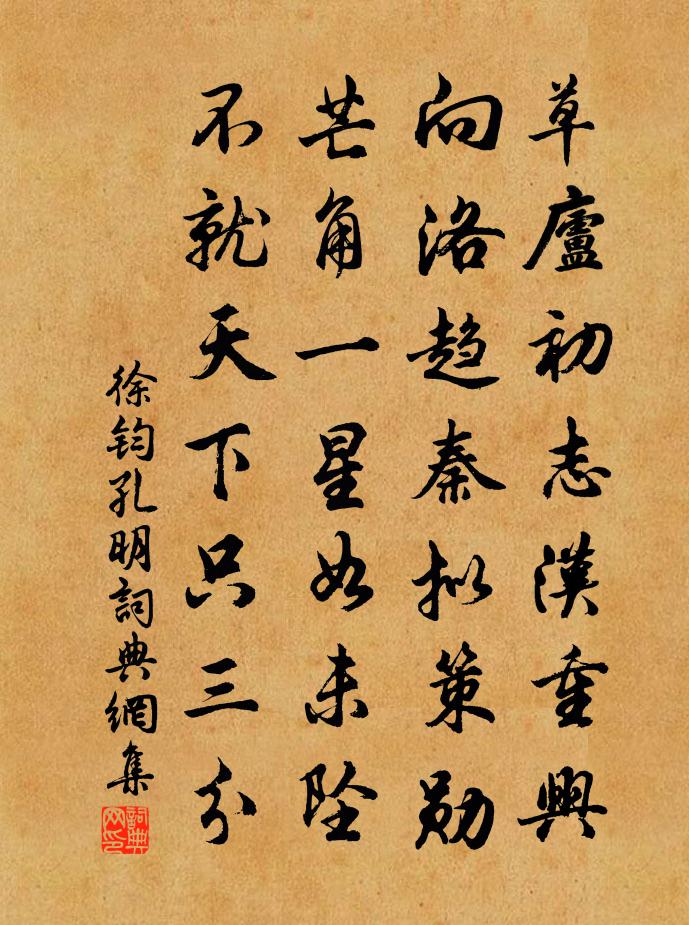 草廬初志漢重興
向洛趋秦拟策勋
芒角一星如未坠
不就天下只三分
徐鈞孔明詞典網集
詞典网印